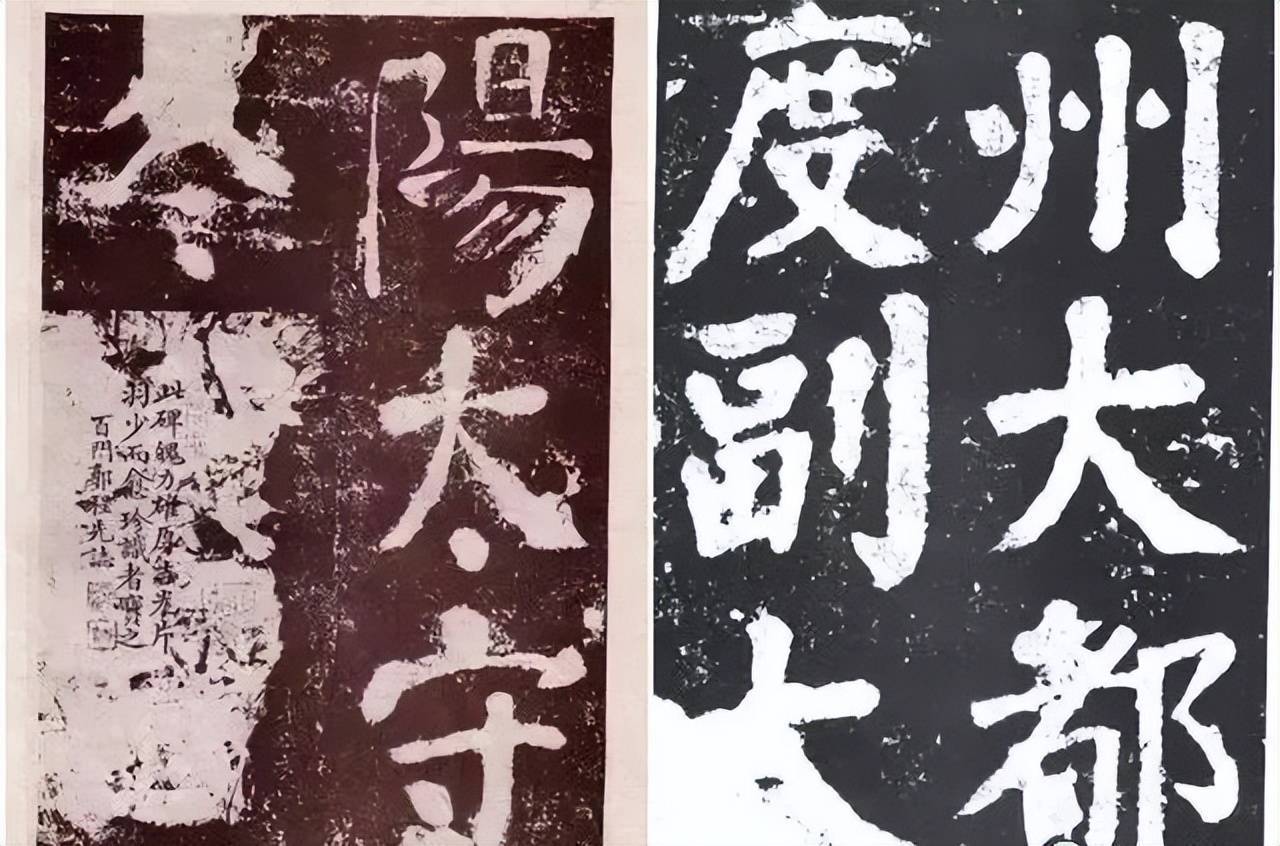 陽太守
此碑魄力雄厚吉光片
羽少而愈珍識者寶之
百門郭程先誌
州大都
度副大